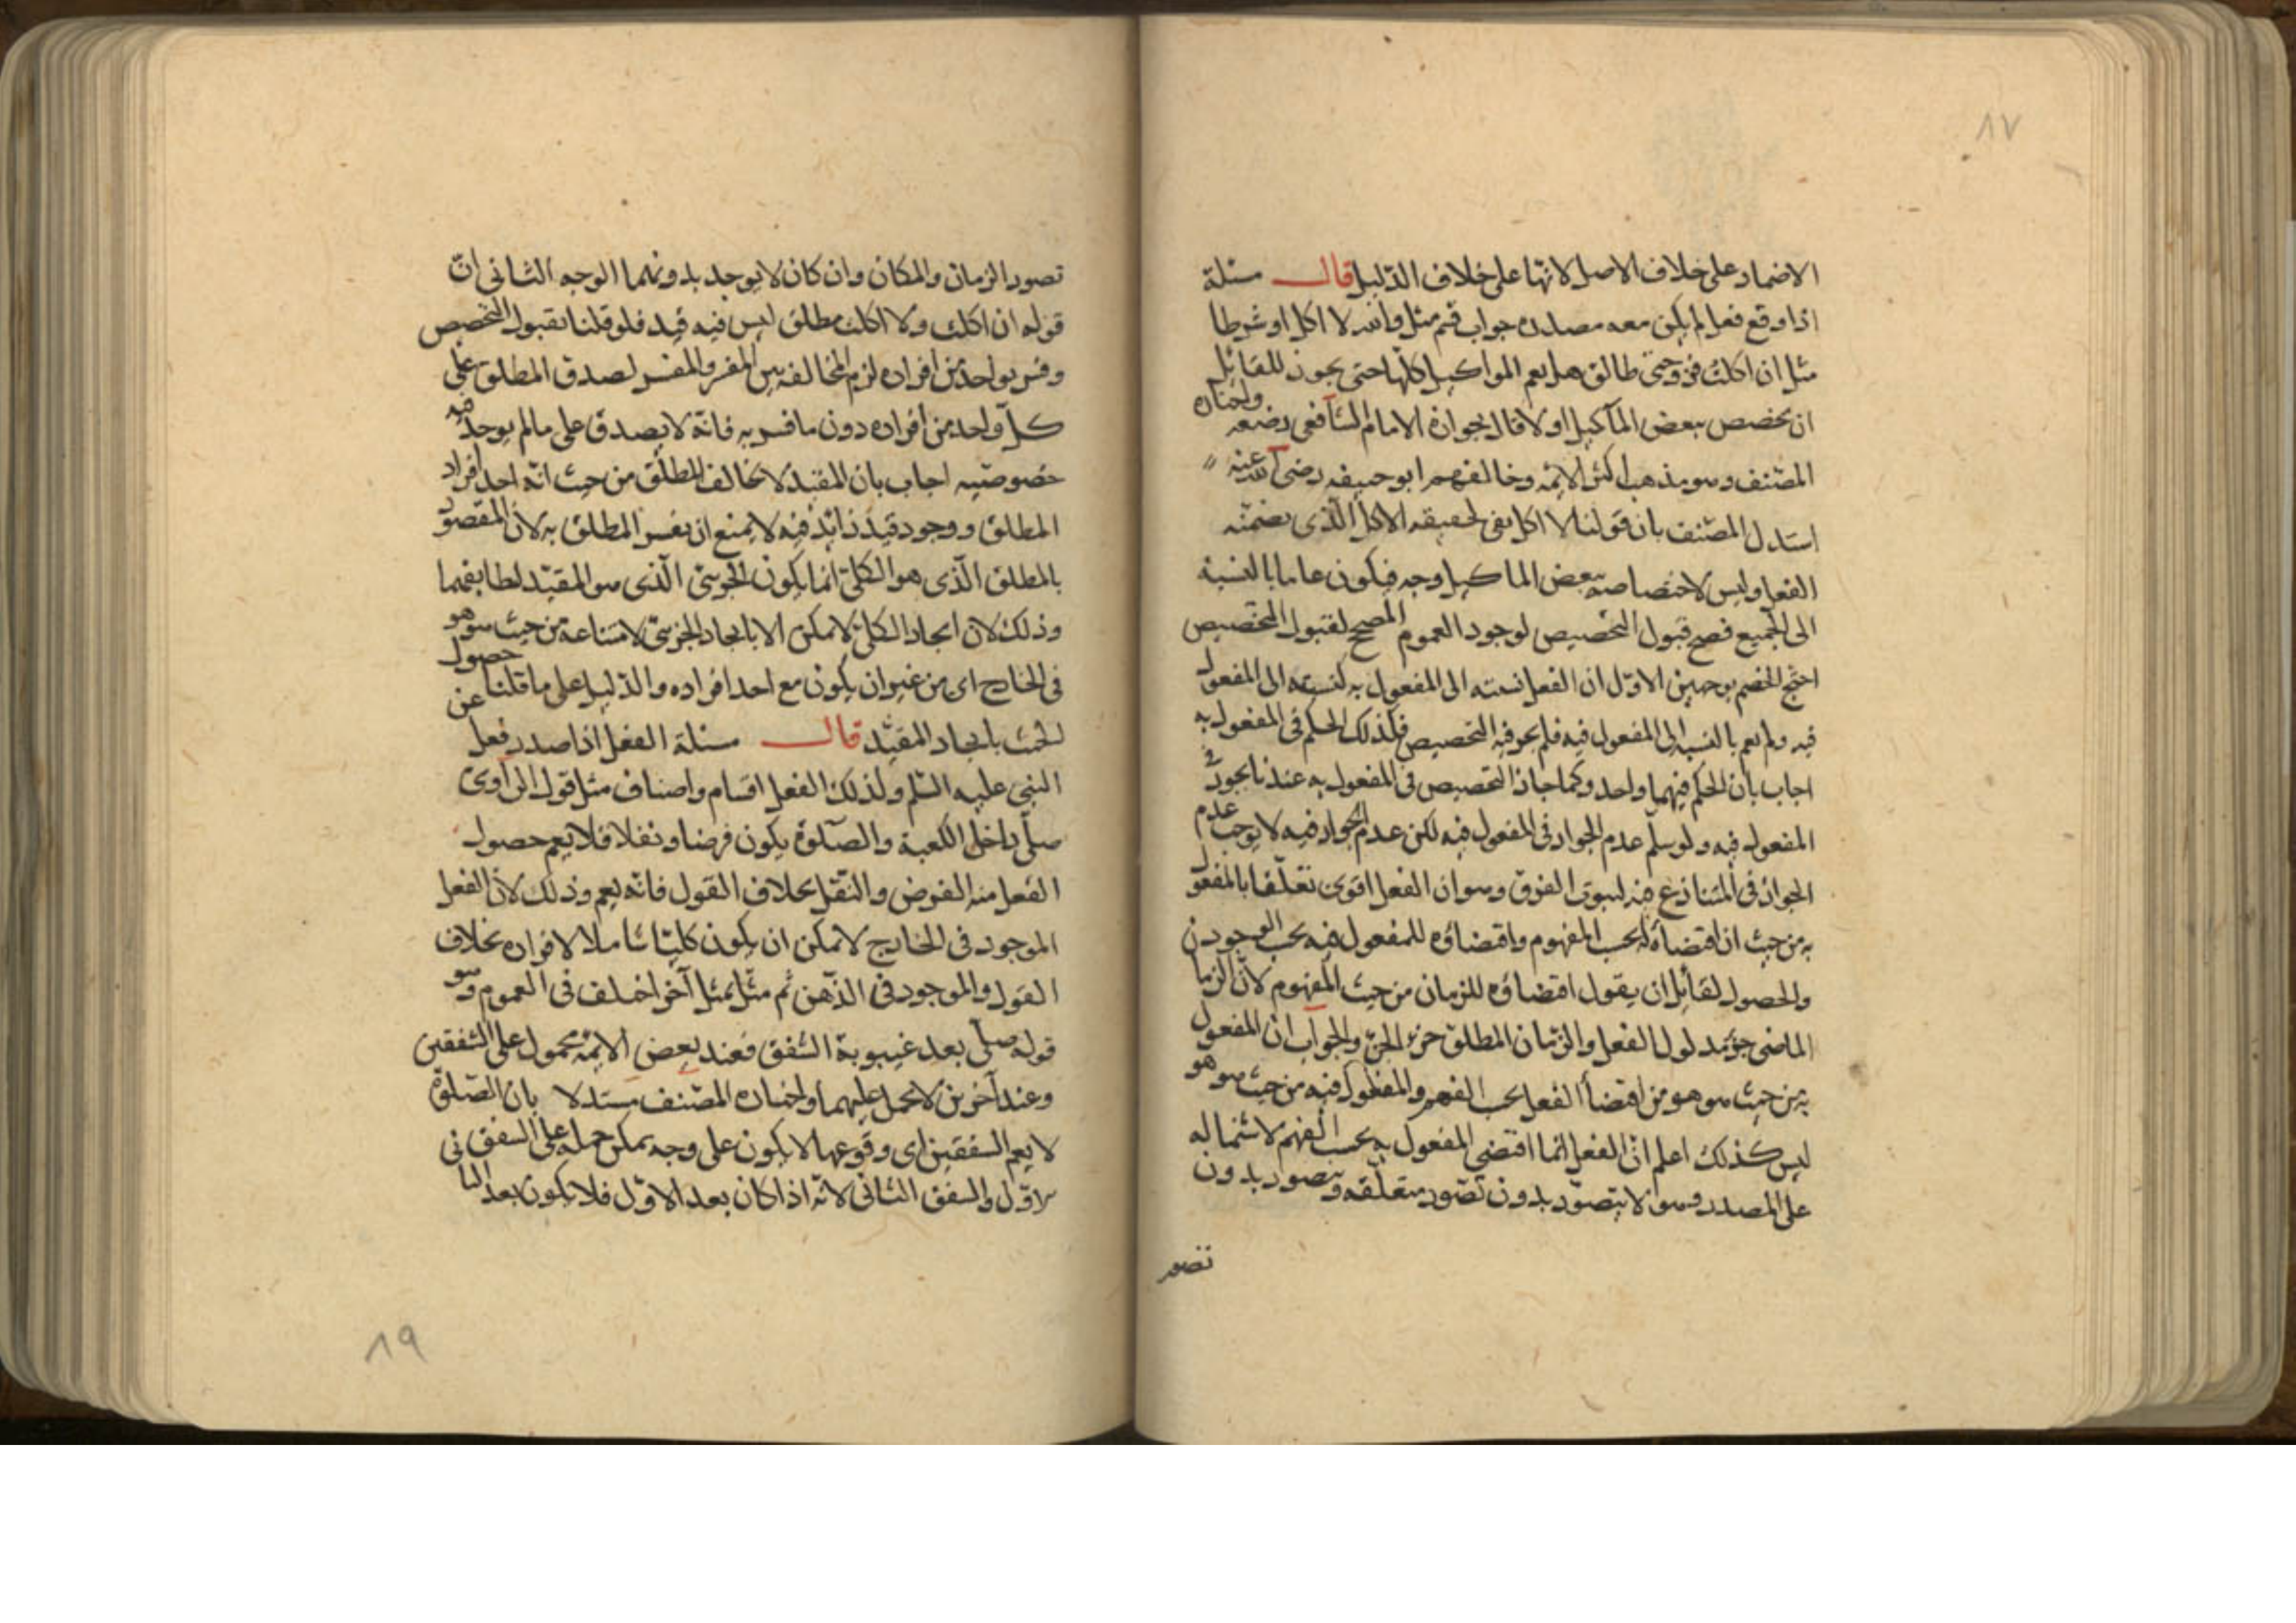 ٨٧
الاضمار على خلاف الاصل لانها على خلاف الدّليل قال مسئلة
اذا وقع فعل لم يكن معه مصدره جواب قسم مثل والله لا اكل او شرطا
مثل ان اكلت فزوجتى طالق هل يعم المواكيل كلّها حتى يجوز للقايل
ان يخصص ببعض المآكيل اولا قال بجوازه الامام الشافعى رضعه واختاره
المصّنف وهو مذهب اكثر الايمه وخالفهم ابو حنيفه رضى الله عنه
استدل المصّنف بان قولنا لا اكل نفى لحقيقه الاكل الّذى يضمّنه
الفعل وليس لاختصاصه ببعض الماكيل وجه فيكون عاما بالنسبة
الى الجميع فصح قبول التخصيص لوجود العموم المصحح لقبول التخصيص
احتج الخصم بوجهين الاوّل ان الفعل نسبته الى المفعول به كنسبته الى المفعول
فيه ولم يعم بالنسبه الى المفعول فيه فلم يجز فيه التخصيص فكذلك الحكم فى المفعول به
اجاب بان الحكم فيهما واحد وكما جاز التخصيص فى المفعول به عندنا يجوز فى
المفعول فيه ولو سلّم عدم الجواز فى المفعول فيه لكن عدم الجواز فيه لا يوجب عدم
الجواز فى المتنازع فيه لثبوت الفرق وهو ان الفعل اقوى تعلّقا بالمفعو
به من حيث ان اقتضاءه له بحسب المفهوم واقتضاؤه للمفعول فيه بحسب الوجود
والحصول لقايل ان يقول اقتضاؤه للزمان من حيث المفهوم لان الزما
الماضى جزء مدلول الفعل والزّمان المطلق جزء الجزء والجواب ان المفعول
به من حيث هو هو من اقتضأ الفعل بحسب الفهم والمفعول فيه من حيث هو هو
ليس كذلك اعلم انّ الفعل انما اقتضى المفعول به بحسب الفهم لاشتماله
على المصدر وهو لا يتصوّر بدون تصّور متعلّقه ويتصور بدون
تصور
تصور الزمان والمكان وان كان لا يوجد بدونهما الوجه الثانى انّ
قوله ان اكلت ولا اكلت مطلق ليس فيه قيد فلو قلنا بقبول التخصيص
وفسر بواحد من افراده لزم المخالفه بين المفسر والمفسر لصدق المطلق على
كلّ واحد من افراده دون ما فسر به فانّه لا يصدق على مالم يوجد فيه
خصوصيته اجاب بان المقيد لا يخالف المطلق من حيث انّه احد افراد
المطلق ووجود قيد زايد فيه لا يمنع ان يفسر المطلق به لان المقصود
بالمطلق الّذى هو الكلى انما يكون الجزئى الّذى هو المقيّد لطابقهما
وذلك لان ايجاد الكلى لا يمكن الا بايجاد الجزئى لامتناعه من حيث هو هو
فى الخارج اى من غير ان يكون مع احد افراده والدّليل على ما قلنا حصول
الحنث بايجاد المقيّد قال مسئلة الفعل اذا صدر عن
النبى عليه السّلم ولذلك الفعل اقسام واصناف مثل قول الراوى
صلّى داخل الكعبة والصّلوة يكون فرضا ونفلا فلا يعم حصول
الفعل منه الفرض والنّفل بخلاف القول فانّه يعم وذلك لانّ الفعل
الموجود فى الخارج لا يمكن ان يكون كليّا شاملا لافراده بخلاف
القول والموجود فى الذّهن ثم مثّل بمثل آخر اختلف فى العموم وهو
قوله صلى بعد غيبوبة الشفق فعند بعض الايمّه محمول على الشفقين
وعند آخرين لا يحمل عليهما واختاره المصّنف مستدلا بان الصّلوة
لا يعم الشفقين اى وقوعها لا يكون على وجه يمكن حمله على الشفق
الاوّل والشفق الثانى لانّه اذا كان بعد الاوّل فلا يكون بعد الثا
٨٩